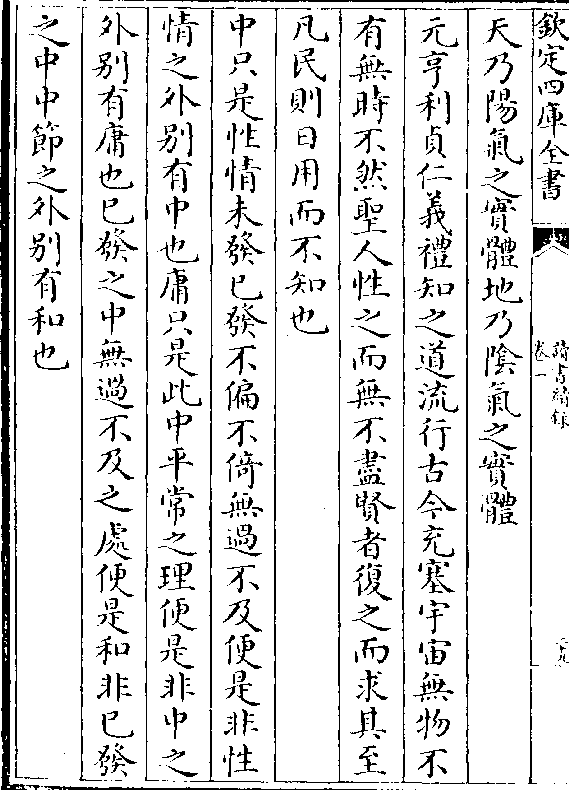 欽定四庫全書
讀書續錄
卷一
天乃陽氣之實體地乃陰氣之實體
元亨利貞仁義禮知之道流行古今充塞宇宙無物不
有無時不然聖人性之而無不盡賢者復之而求其至
凡民則日用而不知也
中只是性情未發已發不偏不倚無過不及便是非性
情之外別有中也庸只是此中平常之理便是非中之
外別有庸也已發之中無過不及之處便是和非已發
之中中節之外別有和也